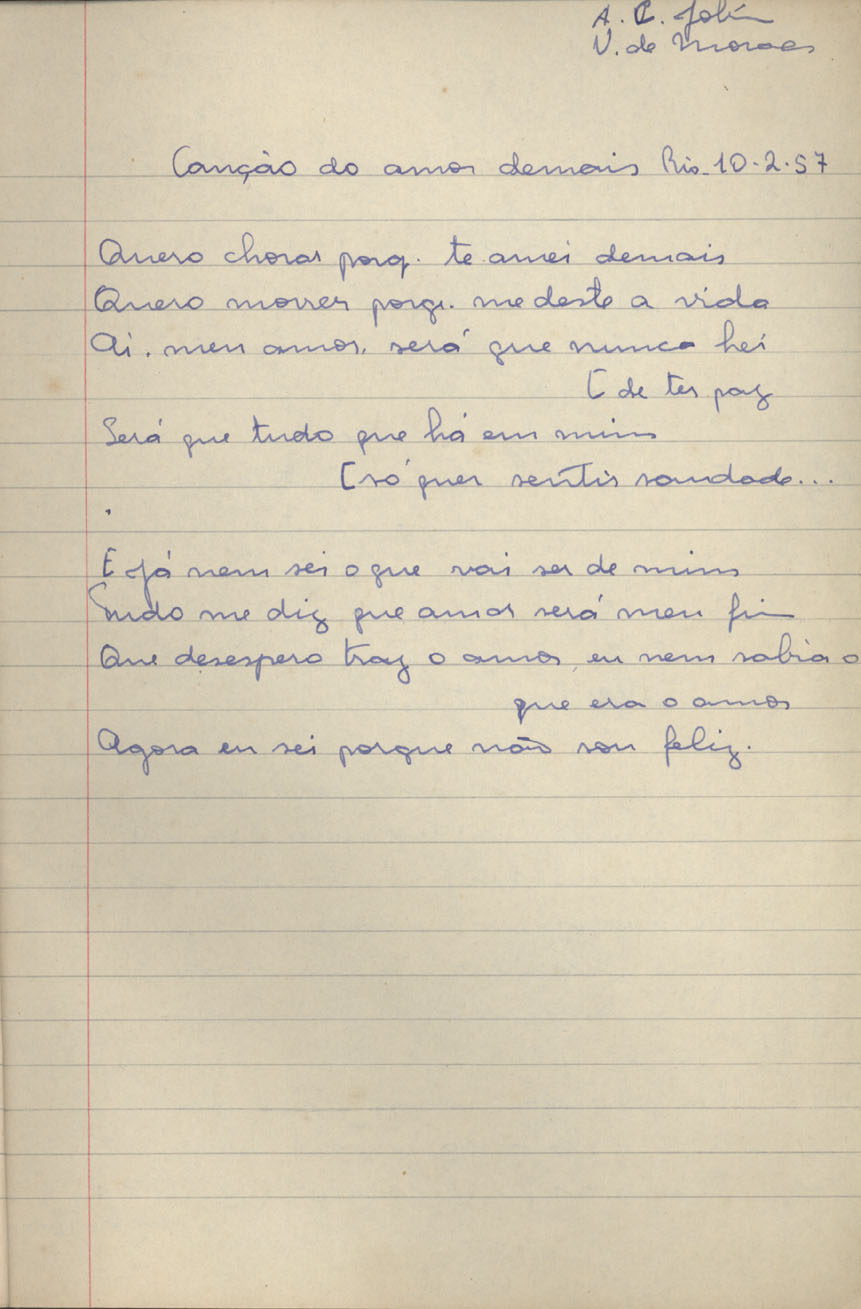 A. C. Jobim
V. de Moraes
Canção do amor demais Rio-10-2-57
Quero chorar porq. te amei demais
Quero morrer porq. me deste a vida
Ai, meu amor, será que nunca hei
[ de ter paz
Será que tudo que há em mim
[só quer sentir saudade...
E já nem sei o que vai ser de mim
Tudo me diz que amar será meu fim
Que desespero traz o amor, eu nem sabia o
que era o amor
Agora eu sei porque não sou feliz.